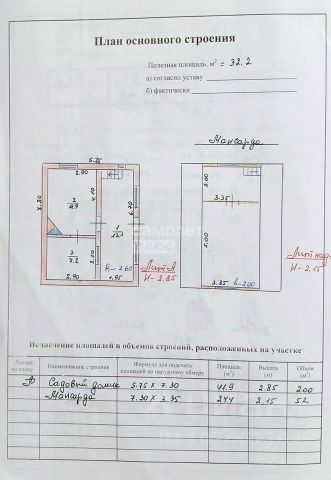 План основного строения
Полезная площадь, м² = 32.2
а) согласно уставу
б) фактически
Мансарда
5.75
2.90
2.00
4.10
6.70
3.35
2
1
3
7.2
h-2.60
2.90
1.95
Лит А
Н-2.85
3.35
h-2.00
Лит над
Н-2.15
самолет
плюс
Исчисление площадей и объемов строений, расположенных на участке
Литера по плану
Наименование строения
Формула для подсчета площадей по наружному обмеру
Площадь (м²)
Высота (м)
Объем (м³)
А Садовый домик 5.75 х 7.30 41.9 2.85 200
Мансарда 7.30 х 3.35 24.4 2.15 52